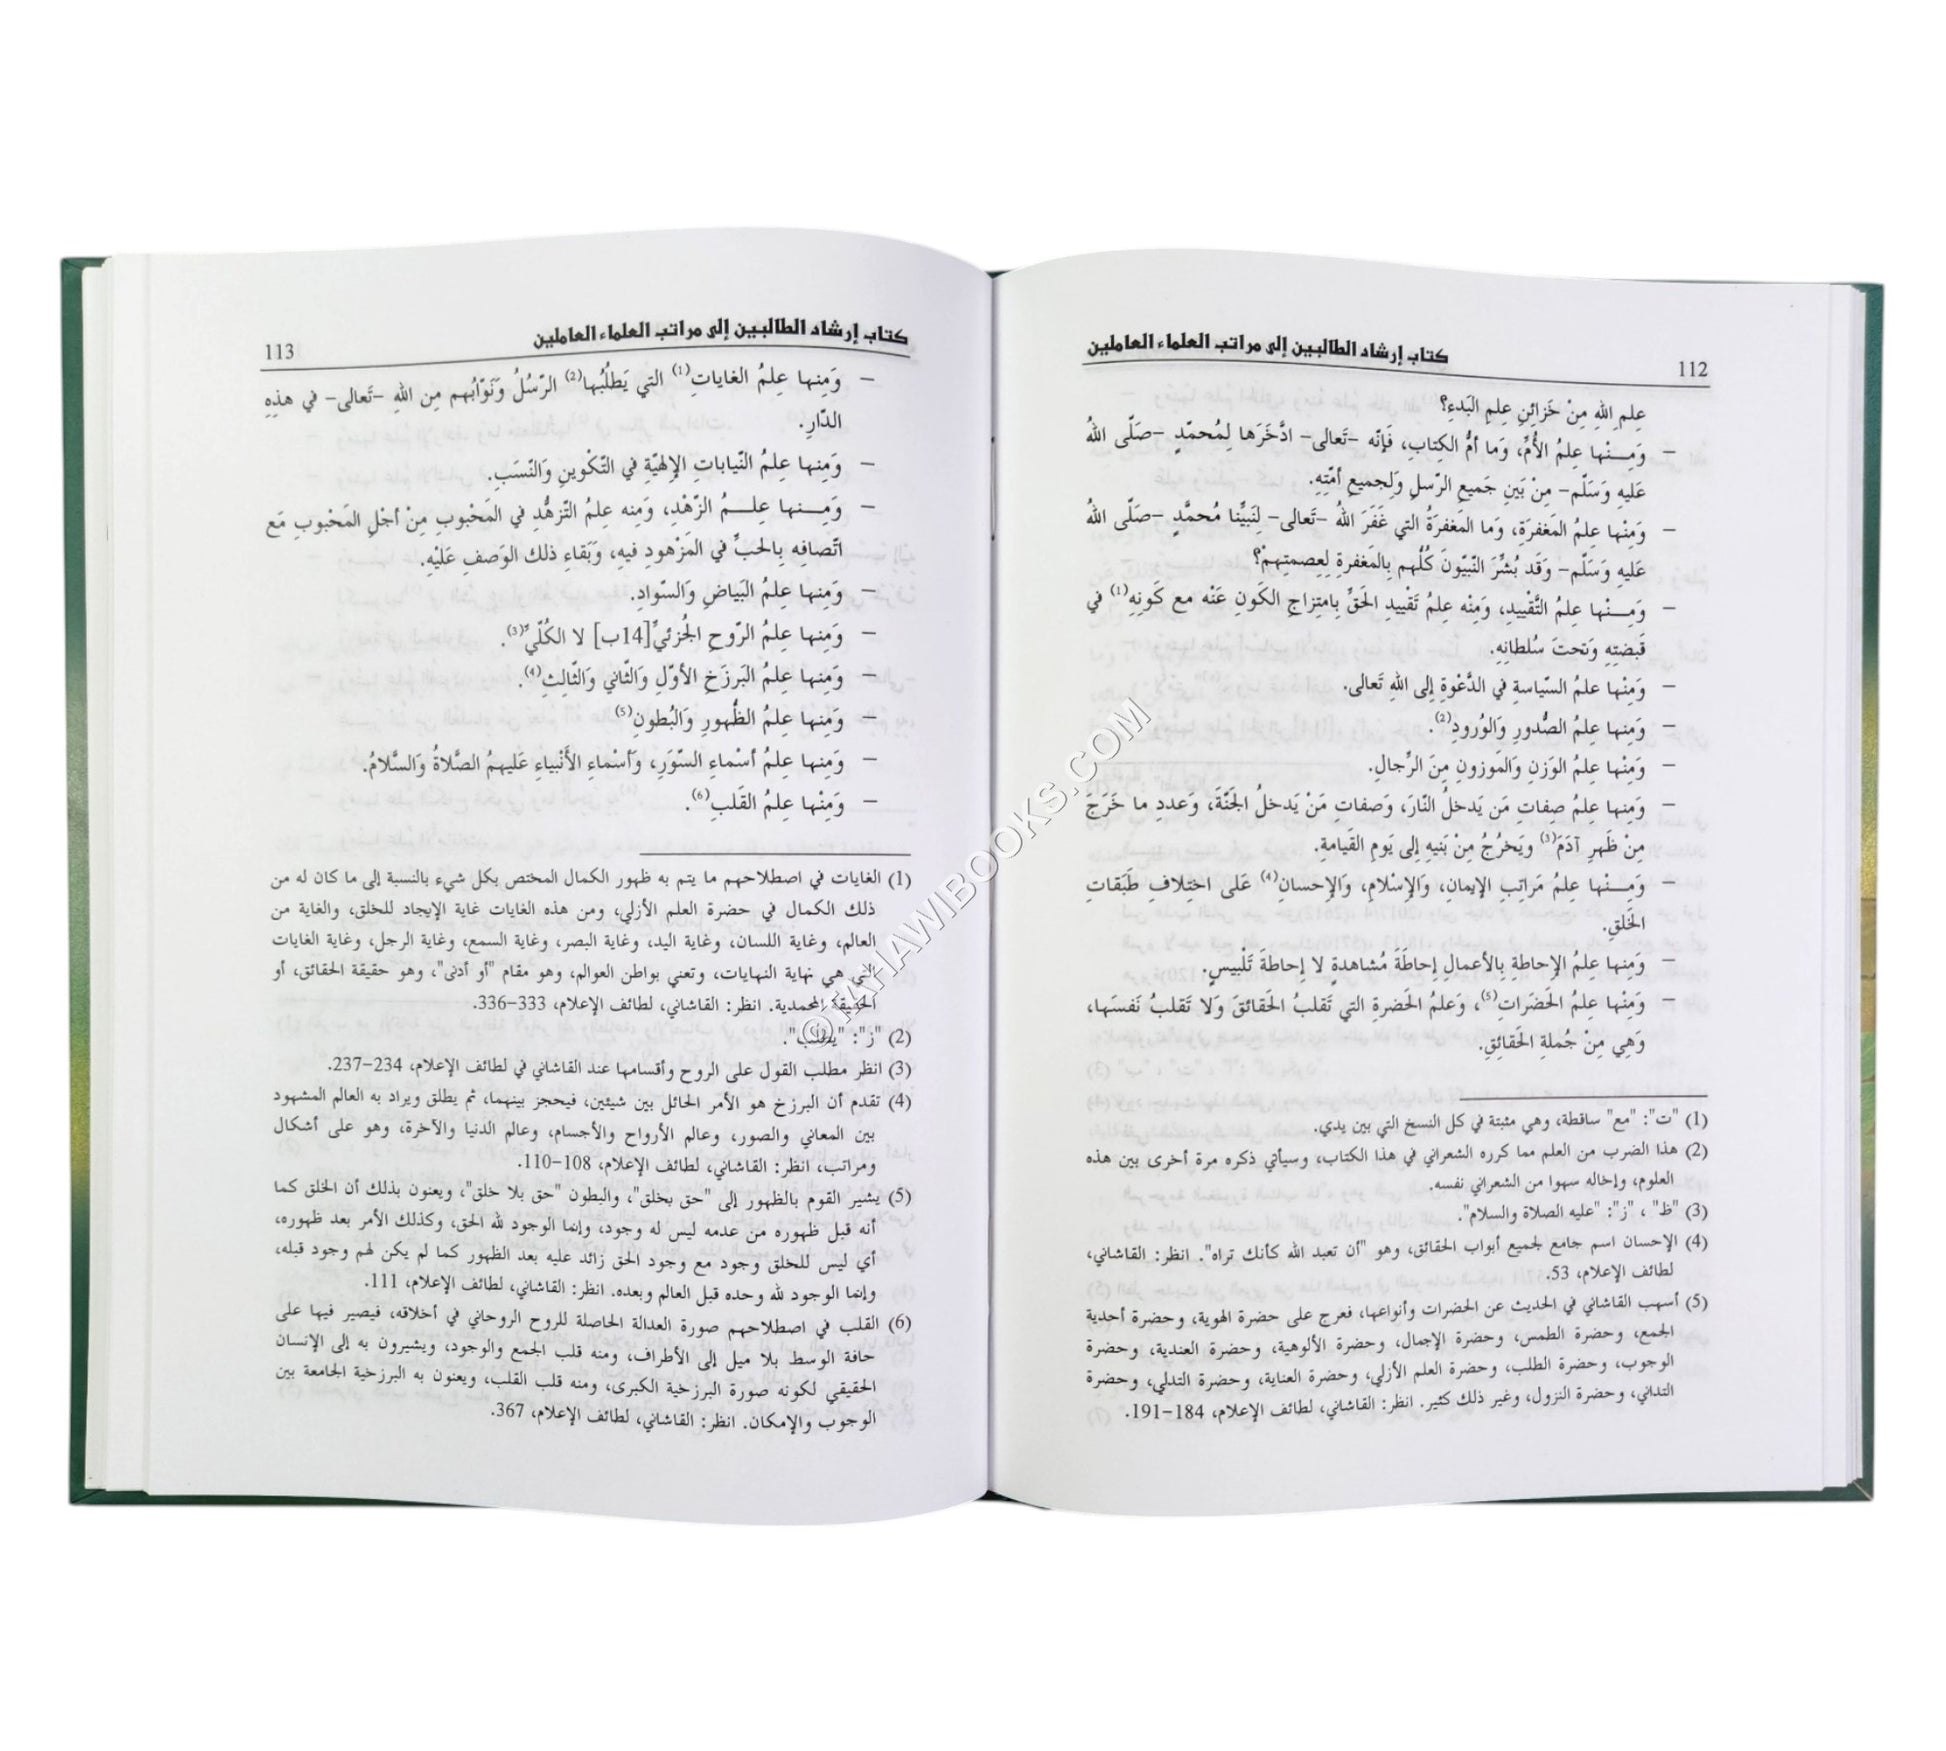 112
كتاب إرشاد الطالبين إلى مراتب العلماء العاملين
عِلمِ اللهِ مِنْ خَزائِنِ عِلمِ البَدءِ؟
– وَمِـــنْها عِلمُ الأُمِّ، وَما أمُّ الكِتابِ، فَإنّه –تَعالى– ادَّخَرَها لِمُحمّدٍ –صَلّى اللهُ
عَليهِ وَسَلّم– مِنْ بَينِ جَميعِ الرّسلِ وَلِجميعِ أمّتِهِ.
– وَمِنْها عِلمُ المَغفرَةِ، وَما المَغفرَةُ التي غَفَرَ اللهُ –تَعالى– لِنَبيِّنا مُحمَّدٍ –صَلّى اللهُ
عَليهِ وَسَلّم– وَقَد بُشِّرَ النّبيّونَ كُلُّهم بِالمَغفرةِ لِعِصمتِهِمْ؟
– وَمِـــنْها عِلمُ التَّقْييدِ، وَمِنْه عِلمُ تَقْييدِ الحَقِّ بِامتِزاجِ الكَونِ عَنْه مع كَونِهِ(1) في
قَبضتِهِ وَتَحتَ سُلطانِهِ.
– وَمِنْها عِلمُ السّياسةِ في الدَّعْوةِ إلى اللهِ تَعالى.
– وَمِنها عِلمُ الصُّدورِ وَالوُرودِ(2).
– وَمِنْها عِلمُ الوَزنِ وَالمَوزونِ مِنَ الرِّجالِ.
– وَمِنها عِلمُ صِفاتِ مَن يَدخلُ النّارَ، وَصفاتِ مَنْ يَدخلُ الجَنّةَ، وَعددِ ما خَرَجَ
مِنْ ظَهرِ آدَمَ(3) وَيَخرُجُ مِنْ بَنيهِ إلى يَومِ القَيامةِ.
– وَمِـــنْها عِلمُ مَراتِبِ الإيمانِ، وَالإسْلامِ، وَالإحسانِ(4) عَلى اختِلافِ طَبَقاتِ
الخَلقِ.
– وَمِنها عِلمُ الإحاطةِ بِالأعمالِ إحاطَةَ مُشاهدةٍ لا إحاطةَ تَلْبيسٍ.
– وَمِنْها عِلمُ الحَضَراتِ(5)، وَعَلمُ الحَضرةِ التي تَقلبُ الحَقائقَ وَلا تَقلبُ نَفسَها،
وَهِي مِنْ جُملةِ الحَقائِقِ.
(1) "ت": "مع" ساقطة، وهي مثبتة في كل النسخ التي بين يدي.
(2) هذا الضرب من العلم مما كرره الشعراني في هذا الكتاب، وسيأتي ذكره مرة أخرى بين هذه
العلوم، وإخاله سهوا من الشعراني نفسه.
(3) "ظ" ، "ز": "عليه الصلاة والسلام".
(4) الإحسان اسم جامع لجميع أبواب الحقائق، وهو "أن تعبد الله كأنك تراه". انظر: القاشاني،
لطائف الإعلام، 53.
(5) أسهب القاشاني في الحديث عن الحضرات وأنواعها، فعرج على حضرة الهوية، وحضرة أحدية
الجمع، وحضرة الطمس، وحضرة الإجمال، وحضرة الألوهية، وحضرة العندية، وحضرة
الوجوب، وحضرة الطلب، وحضرة العلم الأزلي، وحضرة العناية، وحضرة التدلي، وحضرة
التداني، وحضرة النزول، وغير ذلك كثير. انظر: القاشاني، لطائف الإعلام، 184–191.
113
كتاب إرشاد الطالبين إلى مراتب العلماء العاملين
– وَمِنها عِلمُ الغاياتِ(1) التي يَطلُبُها(2) الرّسُلُ وَنَوّابُهم مِن اللهِ –تَعالى– في هذِهِ
الدّارِ.
– وَمِنها عِلمُ النّياباتِ الإلهيّةِ في التّكْوينِ وَالنّسَبِ.
– وَمِـــنها عِلـــمُ الزّهْدِ، وَمِنه عِلمُ التّزهُّدِ في المَحْبوبِ مِنْ أجْلِ المَحْبوبِ مَع
اتّصافِه بِالحبِّ في المَزْهودِ فيهِ، وَبَقاءِ ذلك الوَصفِ عَليْهِ.
– وَمِنها عِلمُ البَياضِ وَالسّوادِ.
– وَمِنها عِلمُ الرّوحِ الجُزئيِّ[14ب] لا الكُلّيِّ(3).
– وَمِنها عِلمُ البَرزَخِ الأوّلِ وَالثّاني وَالثّالِثِ(4).
– وَمِنها عِلمُ الظُّهورِ وَالبُطونِ(5)
– وَمِنها عِلمُ أسْماءِ السّوَرِ، وَأسْماءِ الأَنْبياءِ عَليهمُ الصَّلاةُ وَالسَّلامُ.
– وَمِنْها عِلمُ القَلبِ(6).
(1) الغايات في اصطلاحهم ما يتم به ظهور الكمال المختص بكل شيء بالنسبة إلى ما كان له من
ذلك الكمال في حضرة العلم الأزلي، ومن هذه الغايات غاية الإيجاد للخلق، والغاية من
العالم، وغاية اللسان، وغاية اليد، وغاية البصر، وغاية السمع، وغاية الرجل، وغاية الغايات
التي هي نهاية النهايات، وتعني بواطن العوالم، وهو مقام "أو أدنى"، وهو حقيقة الحقائق، أو
الحقيقة المحمدية. انظر: القاشاني، لطائف الإعلام، 333–336.
(2) "ز": "يطلب".
(3) انظر مطلب القول على الروح وأقسامها عند القاشاني في لطائف الإعلام، 234–237.
(4) تقدم أن البرزخ هو الأمر الحائل بين شيئين، فيحجز بينهما، ثم يطلق ويراد به العالم المشهود
بين المعاني والصور، وعالم الأرواح والأجسام، وعالم الدنيا والآخرة، وهو على أشكال
ومراتب، انظر: القاشاني، لطائف الإعلام، 108–110.
(5) يشير القوم بالظهور إلى "حق بخلق"، والبطون "حق بلا خلق"، ويعنون بذلك أن الخلق كما
أنه قبل ظهوره من عدمه ليس له وجود، وإنما الوجود لله الحق، وكذلك الأمر بعد ظهوره،
أي ليس للخلق وجود مع وجود الحق زائد عليه بعد الظهور كما لم يكن لهم وجود قبله،
وإنما الوجود لله وحده قبل العالم وبعده. انظر: القاشاني، لطائف الإعلام، 111.
(6) القلب في اصطلاحهم صورة العدالة الحاصلة للروح الروحاني في أخلاقه، فيصير فيها على
حافة الوسط بلا ميل إلى الأطراف، ومنه قلب الجمع والوجود، ويشيرون به إلى الإنسان
الحقيقي لكونه صورة البرزخية الكبرى، ومنه قلب القلب، ويعنون به البرزخية الجامعة بين
الوجوب والإمكان. انظر: القاشاني، لطائف الإعلام، 367.
©TAHAWIBOOKS.COM